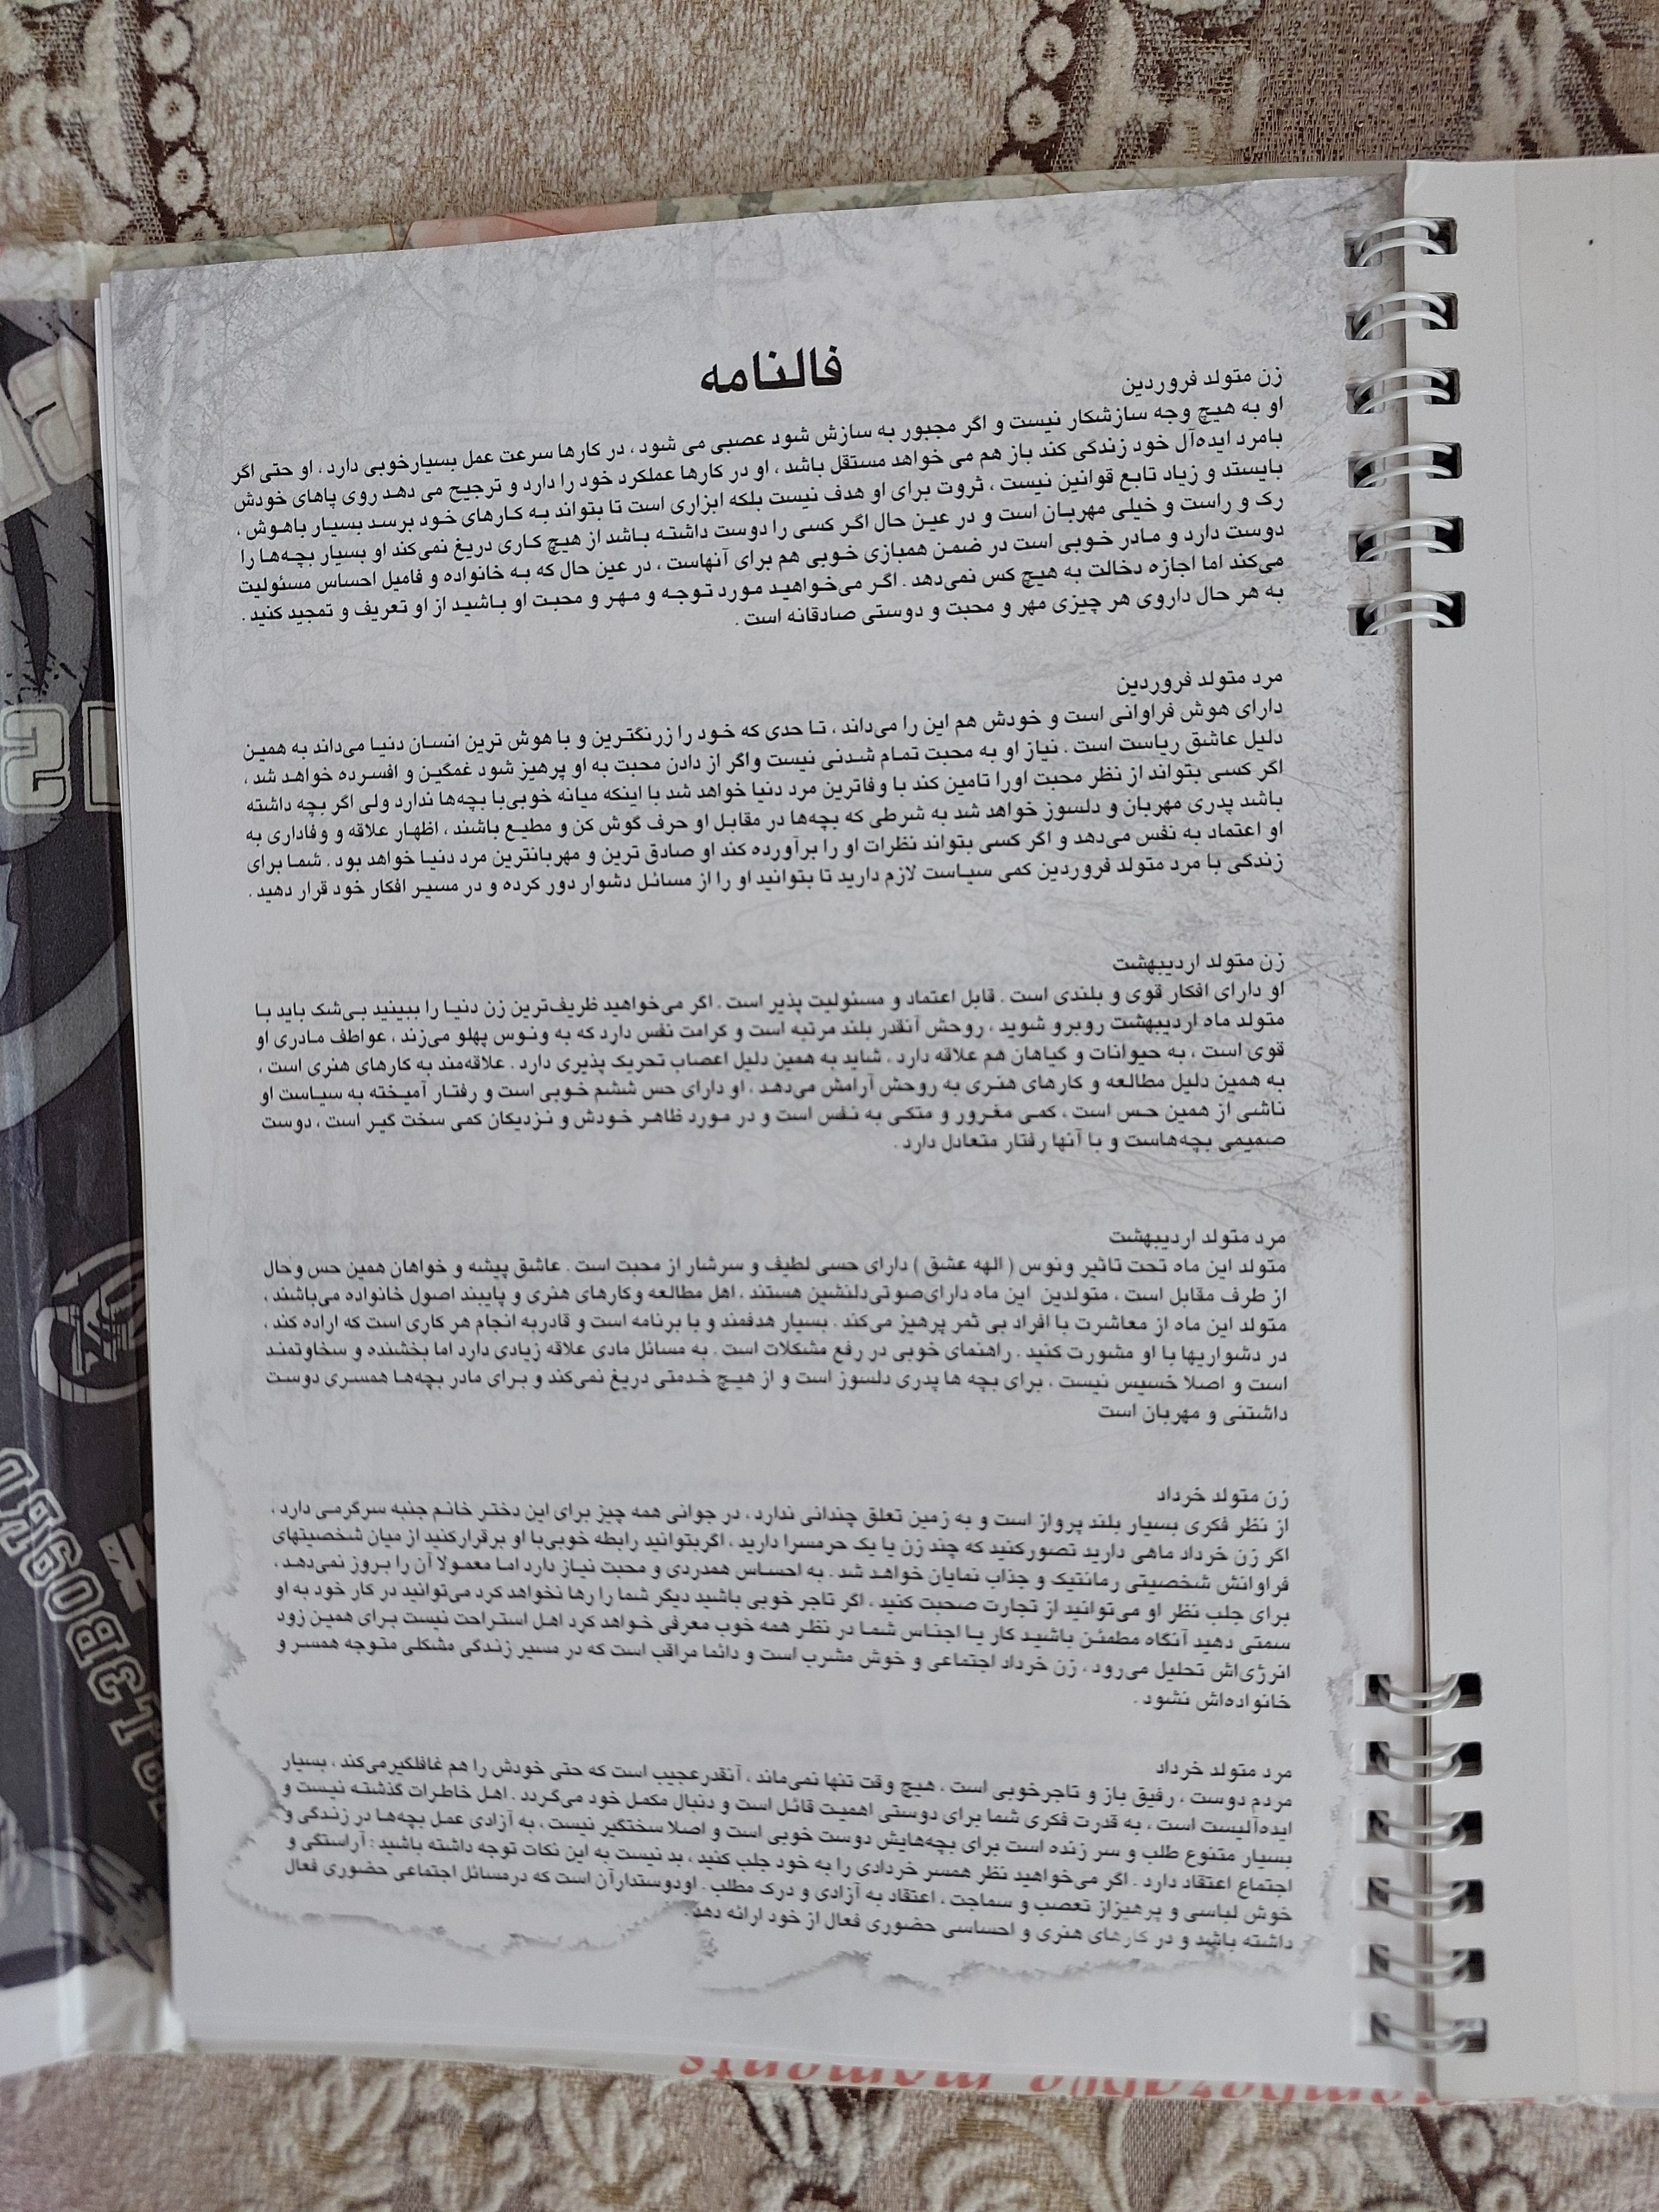 فالنامه
زن متولد فروردین
او به هیچ وجه سازشکار نیست و اگر مجبور به سازش شود عصبی می شود ، در کارها سرعت عمل بسیارخوبی دارد ، او حتی اگر
بامرد ایده‌آل خود زندگی کند باز هم می خواهد مستقل باشد ، او در کارها عملکرد خود را دارد و ترجیح می دهد روی پاهای خودش
بایستد و زیاد تابع قوانین نیست ، ثروت برای او هدف نیست بلکه ابزاری است تا بتواند به کارهای خود برسد بسیار باهوش ،
رک و راست و خیلی مهربان است و در عین حال اگر کسی را دوست داشته باشد از هیچ کاری دریغ نمی‌کند او بسیار بچه‌ها را
دوست دارد و مادر خوبی است در ضمن همبازی خوبی هم برای آنهاست ، در عین حال که به خانواده و فامیل احساس مسئولیت
می‌کند اما اجازه دخالت به هیچ کس نمی‌دهد . اگر می‌خواهید مورد توجه و مهر و محبت او باشید از او تعریف و تمجید کنید .
به هر حال داروی هر چیزی مهر و محبت و دوستی صادقانه است .
مرد متولد فروردین
دارای هوش فراوانی است و خودش هم این را می‌داند ، تا حدی که خود را زرنگترین و با هوش ترین انسان دنیا می‌داند به همین
دلیل عاشق ریاست است . نیاز او به محبت تمام شدنی نیست واگر از دادن محبت به او پرهیز شود غمگین و افسرده خواهد شد ،
اگر کسی بتواند از نظر محبت اورا تامین کند با وفاترین مرد دنیا خواهد شد با اینکه میانه خوبی‌با بچه‌ها ندارد ولی اگر بچه داشته
باشد پدری مهربان و دلسوز خواهد شد به شرطی که بچه‌ها در مقابل او حرف گوش کن و مطیع باشند ، اظهار علاقه و وفاداری به
او اعتماد به نفس می‌دهد و اگر کسی بتواند نظرات او را برآورده کند او صادق ترین و مهربانترین مرد دنیا خواهد بود . شما برای
زندگی با مرد متولد فروردین کمی سیاست لازم دارید تا بتوانید او را از مسائل دشوار دور کرده و در مسیر افکار خود قرار دهید .
زن متولد اردیبهشت
او دارای افکار قوی و بلندی است . قابل اعتماد و مسئولیت پذیر است . اگر می‌خواهید ظریف‌ترین زن دنیا را ببینید بی‌شک باید با
متولد ماه اردیبهشت روبرو شوید ، روحش آنقدر بلند مرتبه است و کرامت نفس دارد که به ونوس پهلو می‌زند ، عواطف مادری او
قوی است ، به حیوانات و گیاهان هم علاقه دارد ، شاید به همین دلیل اعصاب تحریک پذیری دارد . علاقه‌مند به کارهای هنری است ،
به همین دلیل مطالعه و کارهای هنری به روحش آرامش می‌دهد ، او دارای حس ششم خوبی است و رفتار آمیخته به سیاست او
ناشی از همین حس است ، کمی مغرور و متکی به نفس است و در مورد ظاهر خودش و نزدیکان کمی سخت گیر است ، دوست
صمیمی بچه‌هاست و با آنها رفتار متعادل دارد .
مرد متولد اردیبهشت
متولد این ماه تحت تاثیر ونوس ( الهه عشق ) دارای حسی لطیف و سرشار از محبت است . عاشق پیشه و خواهان همین حس وحال
از طرف مقابل است ، متولدین این ماه دارای‌صوتی‌دلنشین هستند ، اهل مطالعه وکارهای هنری و پایبند اصول خانواده می‌باشند ،
متولد این ماه از معاشرت با افراد بی ثمر پرهیز می‌کند . بسیار هدفمند و با برنامه است و قادربه انجام هر کاری است که اراده کند ،
در دشواریها با او مشورت کنید . راهنمای خوبی در رفع مشکلات است . به مسائل مادی علاقه زیادی دارد اما بخشنده و سخاوتمند
است و اصلا خسیس نیست ، برای بچه ها پدری دلسوز است و از هیچ خدمتی دریغ نمی‌کند و برای مادر بچه‌ها همسری دوست
داشتنی و مهربان است
زن متولد خرداد
از نظر فکری بسیار بلند پرواز است و به زمین تعلق چندانی ندارد ، در جوانی همه چیز برای این دختر خانم جنبه سرگرمی دارد ،
اگر زن خرداد ماهی دارید تصورکنید که چند زن یا یک حرمسرا دارید ، اگربتوانید رابطه خوبی‌با او برقرارکنید از میان شخصیتهای
فراوانش شخصیتی رمانتیک و جذاب نمایان خواهد شد . به احساس همدردی و محبت نیاز دارد اما معمولا آن را بروز نمی‌دهد ،
برای جلب نظر او می‌توانید از تجارت صحبت کنید ، اگر تاجر خوبی باشید دیگر شما را رها نخواهد کرد می‌توانید در کار خود به او
سمتی دهید آنگاه مطمئن باشید کار یا اجناس شما در نظر همه خوب معرفی خواهد کرد اهل استراحت نیست برای همین زود
انرژی‌اش تحلیل می‌رود ، زن خرداد اجتماعی و خوش مشرب است و دائما مراقب است که در مسیر زندگی مشکلی متوجه همسر و
خانواده‌اش نشود .
مرد متولد خرداد
مردم دوست ، رفیق باز و تاجرخوبی است ، هیچ وقت تنها نمی‌ماند ، آنقدرعجیب است که حتی خودش را هم غافلگیرمی‌کند ، بسیار
ایده‌آلیست است ، به قدرت فکری شما برای دوستی اهمیت قائل است و دنبال مکمل خود می‌گردد . اهل خاطرات گذشته نیست و
بسیار متنوع طلب و سر زنده است برای بچه‌هایش دوست خوبی است و اصلا سختگیر نیست ، به آزادی عمل بچه‌ها در زندگی و
اجتماع اعتقاد دارد . اگر می‌خواهید نظر همسر خردادی را به خود جلب کنید ، بد نیست به این نکات توجه داشته باشید : آراستگی و
خوش لباسی و پرهیزاز تعصب و سماجت ، اعتقاد به آزادی و درک مطلب . اودوستدارآن است که درمسائل اجتماعی حضوری فعال
داشته باشد و در کارهای هنری و احساسی حضوری فعال از خود ارائه دهد .
moments